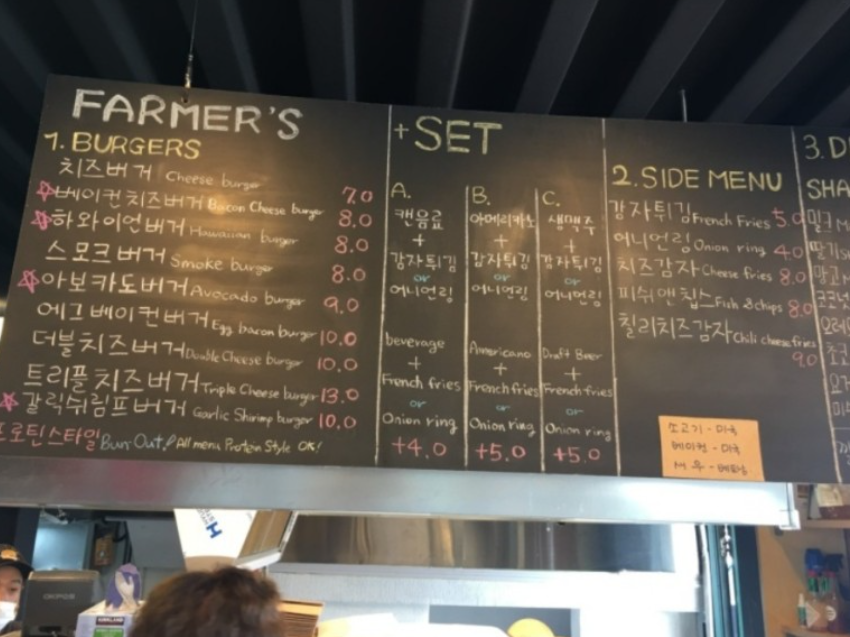 FARMER'S
1. BURGERS
치즈버거 Cheese burger 7.0
베이컨치즈버거 Bacon Cheese burger 8.0
하와이언버거 Hawaiian burger 8.0
스모크버거 Smoke burger 8.0
아보카도버거 Avocado burger 9.0
에그베이컨버거 Egg bacon burger 10.0
더블치즈버거 Double Cheese burger 10.0
트리플치즈버거 Triple Cheese burger 13.0
갈릭쉬림프버거 Garlic Shrimp burger 10.0
프로틴스타일 Bun Out! All menu Protein Style OK!
+SET
A.
캔음료
+
감자튀김
or
어니언링
beverage
+
French fries
or
Onion ring
+4.0
B.
아메리카노
+
감자튀김
or
어니언링
Americano
+
French fries
or
Onion ring
+5.0
C.
생맥주
+
감자튀김
or
어니언링
Draft Beer
+
French fries
or
Onion ring
+5.0
2. SIDE MENU
감자튀김 French Fries 5.0
어니언링 Onion ring 4.0
치즈감자 Cheese fries 8.0
피쉬앤칩스 Fish & chips 8.0
칠리치즈감자 Chili cheese fries
9.0
소고기 - 미국
베이컨 - 미국
새우 - 베트남
3. D
SHA
밀크
딸기
망고
코코넛
초코
OKPOS